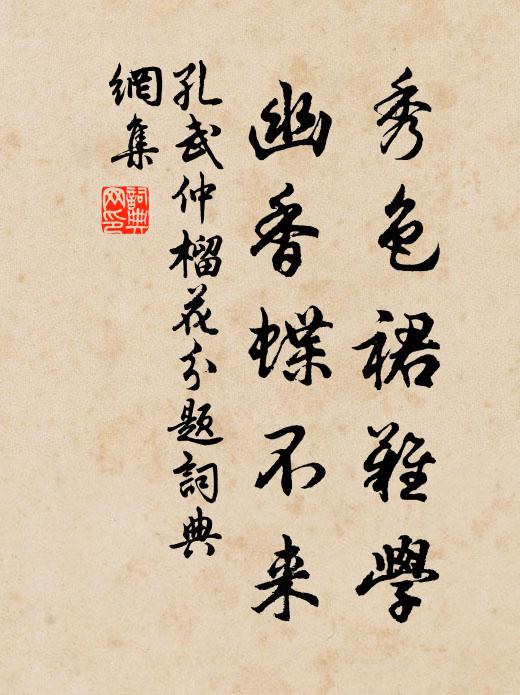 秀色裙難學
幽香蝶不来
孔武仲榴花分題詞典
網集
詞典
网印